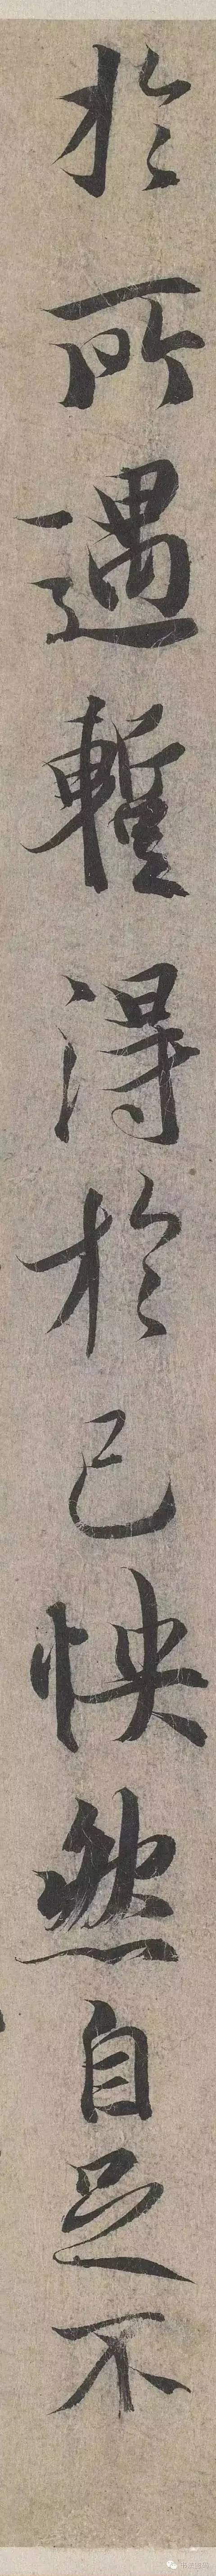 於所遇暫得於己怏然自足不